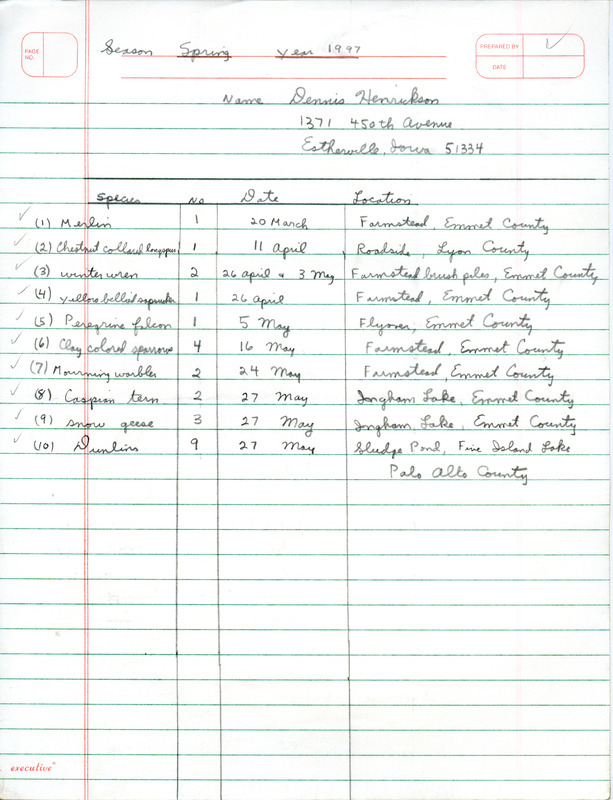 PAGE NO.
Season Spring Year 1997
PREPARED BY
DATE
Name Dennis Henrickson
1371 450th Avenue
Estherville, Iowa 51334
Species No Date Location
(1) Merlin 1 20 March Farmstead, Emmet County
(2) Chestnut collared longspur 1 11 April Roadside, Lyon County
(3) winter wren 2 26 April & 3 May Farmstead brush piles, Emmet County
(4) yellow bellied sapsucker 1 26 April Farmstead, Emmet County
(5) Peregrine falcon 1 5 May Flyover, Emmet County
(6) Clay colored sparrows 4 16 May Farmstead, Emmet County
(7) Mourning warbler 2 24 May Farmstead, Emmet County
(8) Caspian tern 2 27 May Ingham Lake, Emmet County
(9) snow geese 3 27 May Ingham Lake, Emmet County
(10) Dunlins 9 27 May Sludge Pond, Five Island Lake
Palo Alto County
executive